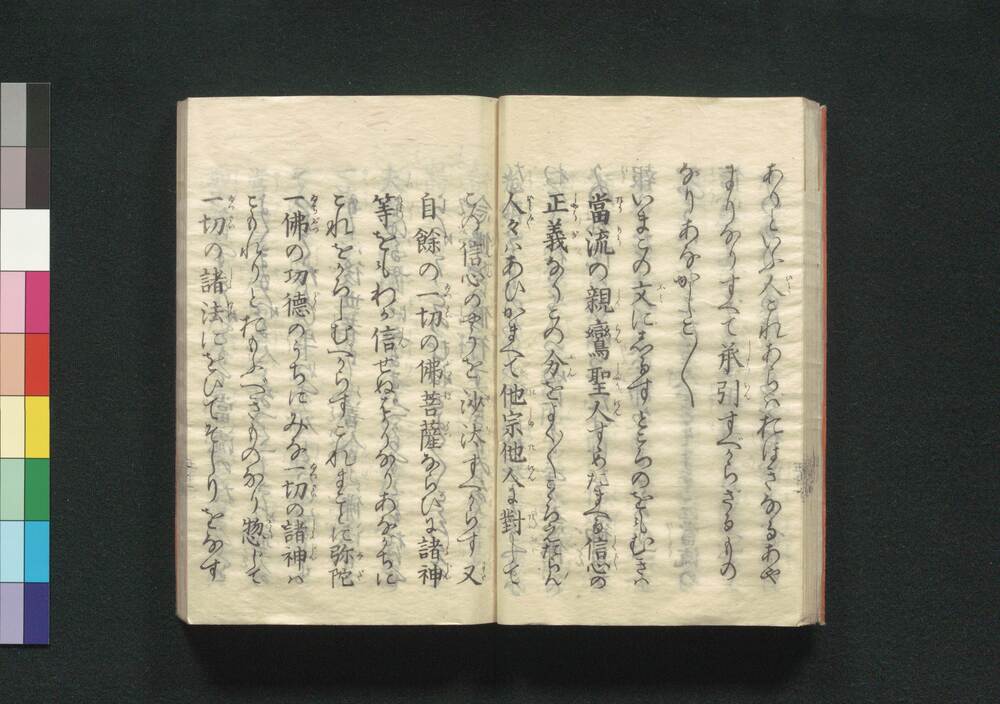 あるといふ人これあらはおほきなるあや
まりなりすへて承引すへからさるもの
なりあなかしこ〱
いまこの文にしるすところのをもむきは
當流の親鸞聖人すゝめたまへる信心の
正義なりこの分をよく〱こゝろえたらん
人々はあひかまへて他宗他人に對して
この信心のやうを沙汰すへからす又
自餘の一切の佛菩薩ならひに諸神
等をもわか信せぬはかりなりあなかちに
これをかろしむへからすこれまことに弥陀
一佛の功德のうちにみな一切の諸神は
こもれりとおもふへきものなり惣して
一切の諸法にをひてそしりをなす